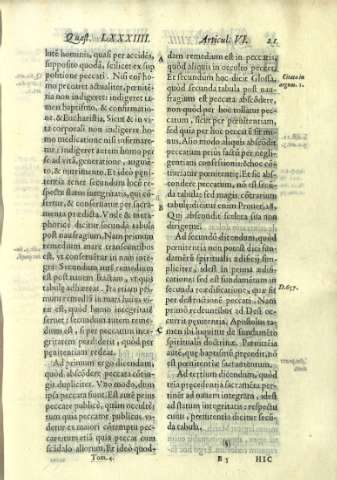 Quæst. LXXXIIII. Articul. VI. 21.
lutē hominis, quasi per accidēs,
supposito quodā, scilicet ex sup
positione peccati. Nisi eni ho
mo peccaret actualiter, pœnitē
tia non indigeret: indigeret ta-
men baptismo, & confirmatio
ne, & Eucharistia, Sicut & in vi
ta corporali non indigeret ho
mo medicatione nisi infirmare
tur, indigeret autem homo per
se ad vitā, generatione, augmē
to, & nutrimento. Et ideo pœni
tentia tenet secundum locū re-
spectu status integritatis, qui cō
fertur, & conseruatur per sacra-
menta prædicta. Vnde & meta-
phoricè dicitur secunda tabula
post naufragium. Nam primum
remedium mare transeuntibus
est, vt conseruētur in naui inte-
gra: Secundum autē remedium
est post nauem fractam, vt quis
tabulę adhæreat. Ita etiam pri-
mum remediū in mari huius vi-
tæ est, quòd homo integritatē
seruet: secundum autem reme-
dium est, si per peccatum inte-
gritatem perdiderit, quòd per
pœnitentiam redeat.
Ad primum ergo dicendum,
quòd abscōdere peccata cōtin-
git dupliciter. Vno modo, dum
ipsa peccata fiunt. Est autē peius
peccare publicè, quàm occultè:
tum quia peccator publicus vi-
detur ex maiori cōtemptu pec-
care: tum etiā quia peccat cum
scādalo aliorum. Et ideo quod-
Tom. 4.
A
B
C
dam remedium est in peccatis,
quòd aliquis in occulto peccet.
Et secundum hoc dicit Glossa,
quòd secunda tabula post nau-
fragium est peccata abscōdere,
non quòd per hoc tollatur pec-
catum, sicut per pœnitentiam,
sed quia per hoc peccatū fit mi-
nus. Alio modo aliquis abscōdit
peccatum prius factū per negli-
gentiam confessionis: & hoc cō-
trariatur pœnitentię; Et sic abs-
condere peccatum, nō est secū-
da tabula: sed magis cōtrarium
tabulę: dicitur enim Prouer. 28.
Qui abscondit scelera sua non
dirigetur.
Ad secundū dicendum, quòd
pœnitentia non potest dici fun-
damētū spiritualis ædificij sim-
pliciter, idest in prima ædifi-
catione: sed est fundamētum in
secunda reædificatione, quæ fit
per destructionē peccati. Nam
primò redeuntibus ad Deū oc-
currit pœnitentia, Apostolus ta-
men ibi loquitur de fundamēto
spiritualis doctrinæ. Pœnitētia
autē, quę baptismū pręcedit, nō
est pœnitentiæ sacramentum.
Ad tertium dicendum, quòd
tria præcedentia sacramēta per-
tinēt ad nauem integram, idest
ad statum integritatis: respectu
cuius, pœnitentia dicitur secū-
da tabula.
B 5 HIC
Citata in
argum. 1.
D.657.